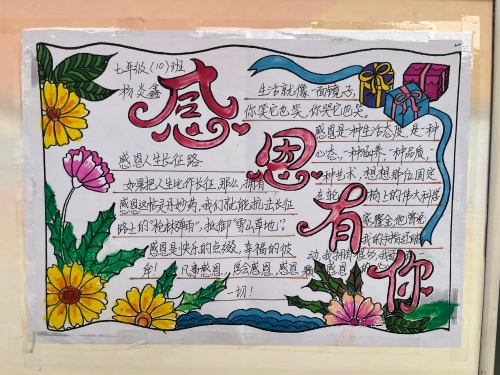 七年级(10)班
杨炎鑫
感恩有你
感恩人生长征路
如果把人生比作长征,那么,拥有
感恩这帖灵丹妙药,我们就能抗击长征
路上的"枪林弹雨",抵御"雪山草地"。
感恩是快乐的点缀,幸福的彼
岸!凡事感恩,学会感恩,感恩
一切!
生活就像一面镜子,
你笑它也笑,你哭它也哭。
感恩是一种生活态度,是一种
心态,一种涵养,一种品质,
一种艺术,想想那位固定
在轮椅上的伟大科学
家霍金他曾
我的手指还能
动,我
感恩